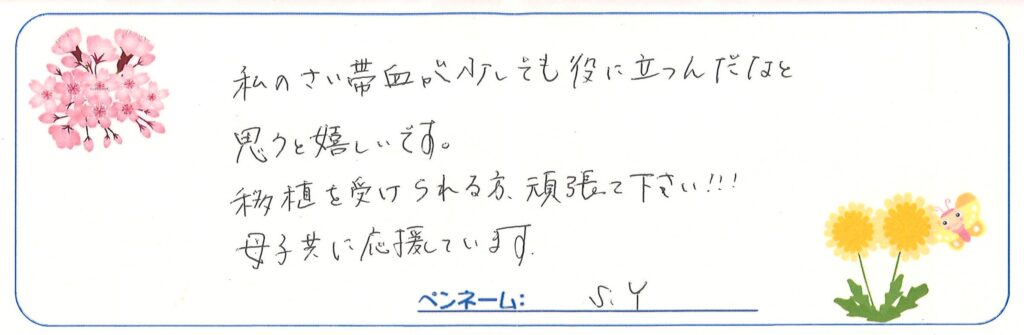 私のさい帯血が少しでも役に立つんだなと
思うと嬉しいです。
移植を受けられる方、頑張て下さい!!!
母子共に応援しています.
ペンネーム: S.Y